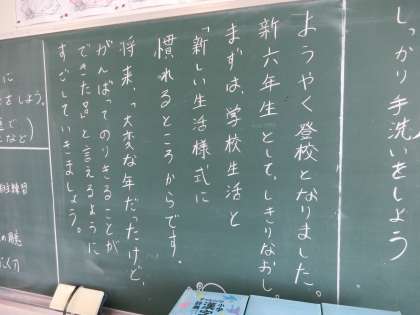 しっかり手洗いをしよう
ようやく登校となりました。
新六年生として、しきりなおし。
まずは、学校生活と
「新しい生活様式に
慣れるところからです。
将来、「大変な年だったけど、
がんばってのりきることが
できた。」と言えるように
すごしていきましょう。
に
をしよう。
で
など)
練習
小学
漢字